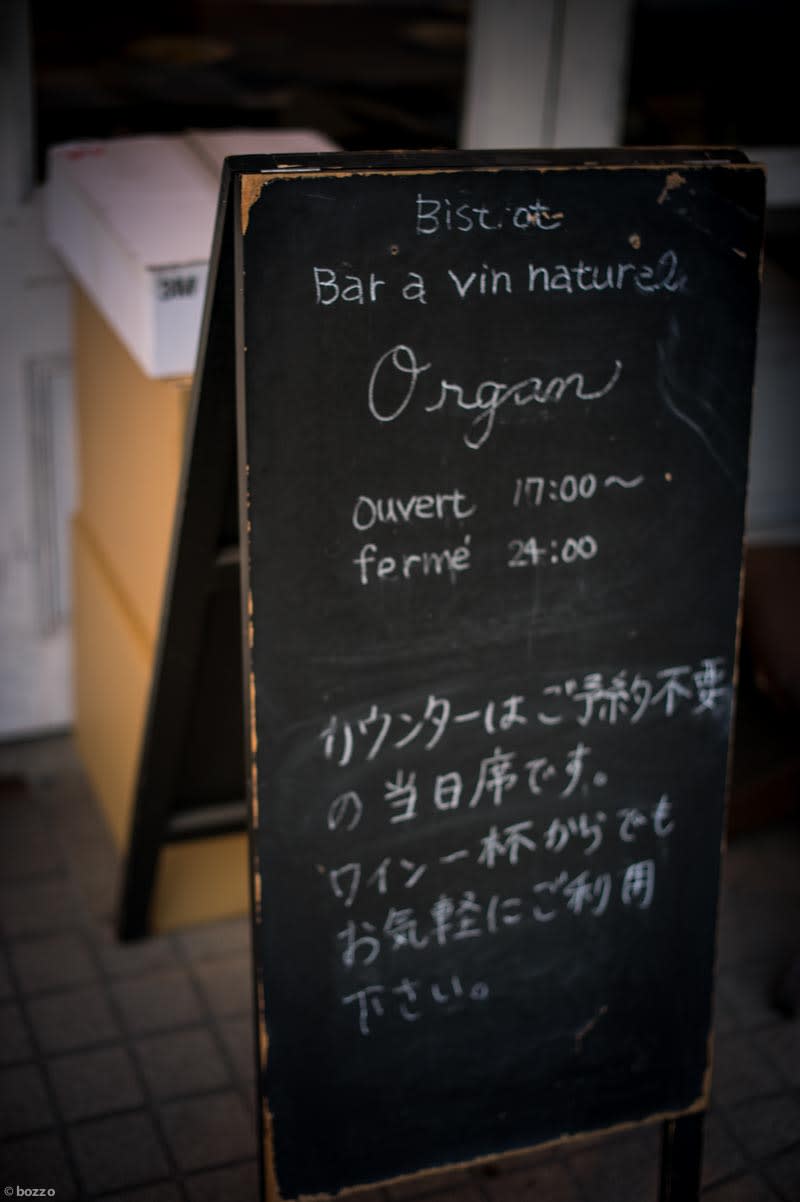 Bistrot
Bar a vin naturel
Organ
ouvert 17:00～
fermé 24:00
カウンターはご予約不要
の当日席です。
ワイン一杯からでも
お気軽にご利用
下さい。
3M
© bozzo